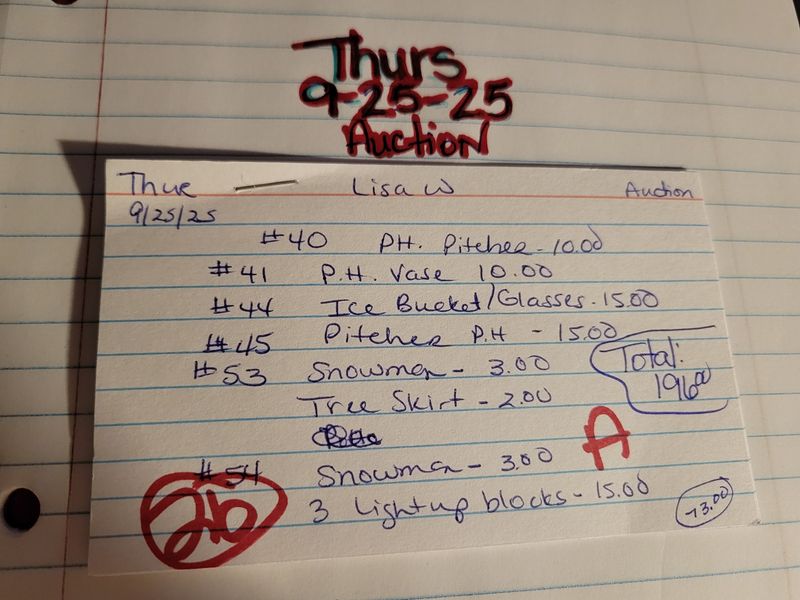 Thurs
9-25-25
Auction
Thur Lisa W Auction
9/25/25
#40 PH. Pitcher - 10.00
#41 P.H. Vase 10.00
#44 Ice Bucket/Glasses - 15.00
#45 Pitcher P.H - 15.00
#53 Snowman - 3.00
Total: 196.00
Tree Skirt - 2.00
A
#54 Snowman - 3.00
26 3 Lightup blocks - 15.00